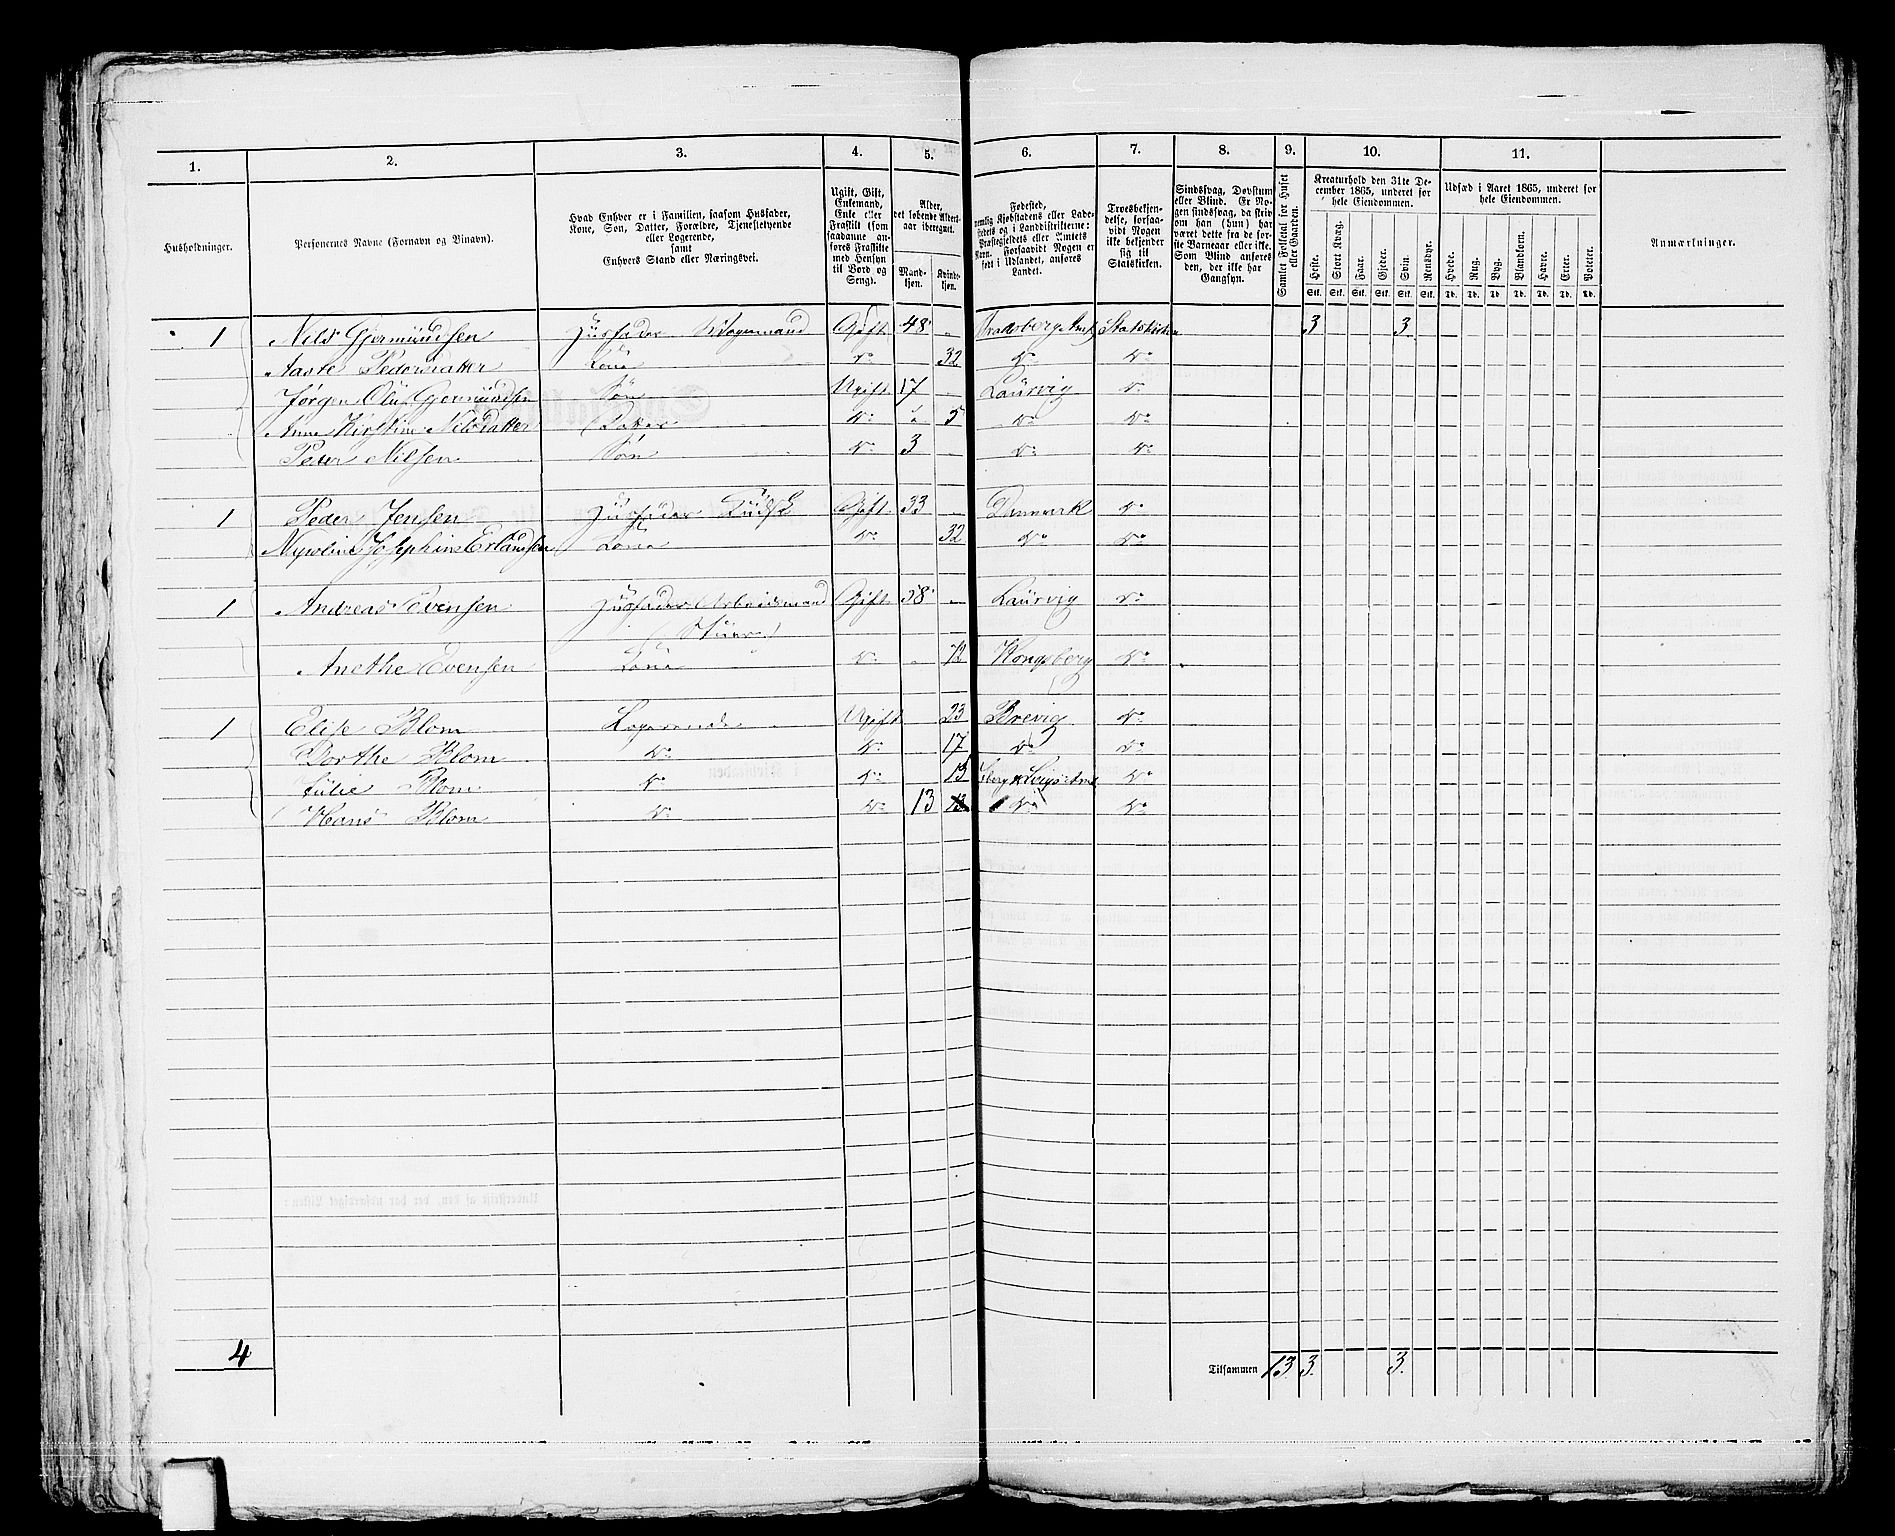 1. 2. 3. 4. 5. 6. 7. 8. 9. 10. 11.
Husholdninger.
Personernes Navne (Fornavn og Binavn).
Hvad Enhver er i Familien, saasom Husfader,
Kone, Søn, Datter, Forældre, Tjenestetyende
eller Logerende,
samt
Enhvers Stand eller Næringsvei.
Ugift, Gift,
Enkemand,
Enke eller
Fraskilt (som
saadanne an-
føres Fraskilte
med Hensyn
til Bord og
Seng).
Alder,
det løbende Alders-
aar iberegnet.
Mand-
kjøn.
Kvinde-
kjøn.
Fødested,
nemlig Kjøbstadens eller Lade-
stedets og i Landdistrikterne:
Præstegjeldets eller Amtets
Navn. Forsaavidt Nogen er
født i Udlandet, anføres
Landet.
Troesbekjen-
delse, forsaa-
vidt Nogen
ikke bekjender
sig til
Statskirken.
Sindssvag, Døvstum
eller Blind. Er No-
gen sindssvag, da skriv
om han (hun) har
været dette fra de før-
ste Barneaar eller ikke.
Som Blind anføres
den, der ikke har
Gangsyn.
Samlet Folketal for Huset
eller Gaarden.
Kreaturhold den 31te De-
cember 1865, underet for
hele Eiendommen.
Heste. Stort Kvæg. Faar. Gjeder. Svin. Rensdyr.
Stk. Stk. Stk. Stk. Stk. Stk.
Udsæd i Aaret 1865, underet for
hele Eiendommen.
Hvede. Rug. Byg. Blandkorn. Havre. Erter. Poteter.
Td. Td. Td. Td. Td. Td. Td.
Anmærkninger.
1 Nils Gjermundsen Husfader Vognmand Gift 48 Bradsberg Amt Statskirken 3 3
Aaste Pedersdatter Kone do 32 do do
Jørgen Olus Gjermundsen Søn Ugift 17 Laurvig do
Anne Kirstine Nilsdatter Datter do 5 do do
Peder Nilsen Søn do 3 do do
1 Peder Jensen Husfader Gift 33 Danmark do
Josephine Erlandsen Kone do 32 do do
1 Andreas Evensen Husfader Arbeidsmand Gift 58 Laurvig do
Anethe Evensen Kone do 72 Kongsberg do
1 Elise Blom Logerende Ugift 23 Brevig do
Dorthe Blom do do 17 do do
Julie Blom do do 13 do
Hans Blom do do 13 do do
4 Tilsammen 13 3. 3.